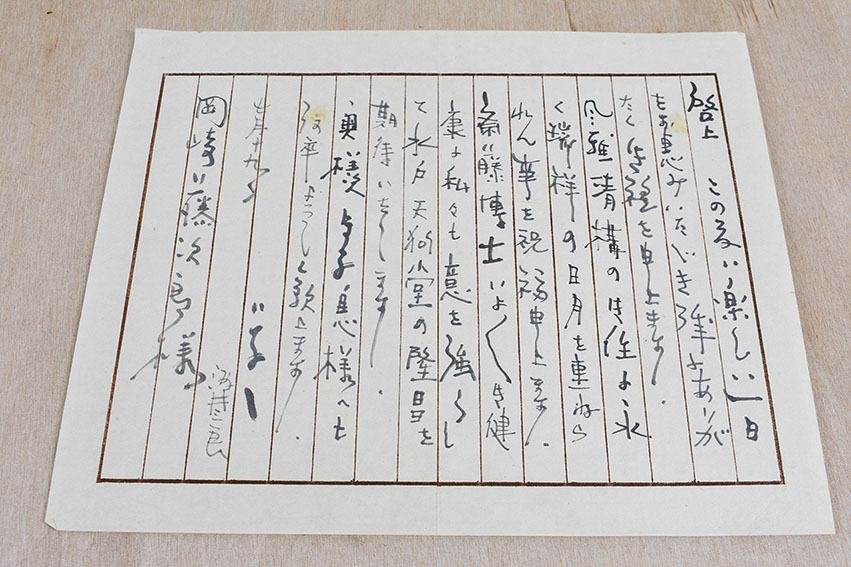 啓上 この度は楽しい一日
をお恵みいただき誠にありが
たく御礼を申上ます
風雅清構の御住に永
く瑞祥の日月を重ねら
れん事を祝福申上ます。
斎藤博士いよ〱御健
康に私々も意を強くし
て水戸天狗堂の隆昌を
期待いたします
奥様 御子息様へも
何卒よろしく願上ます。
七月十九日
岡崎藤次郎様